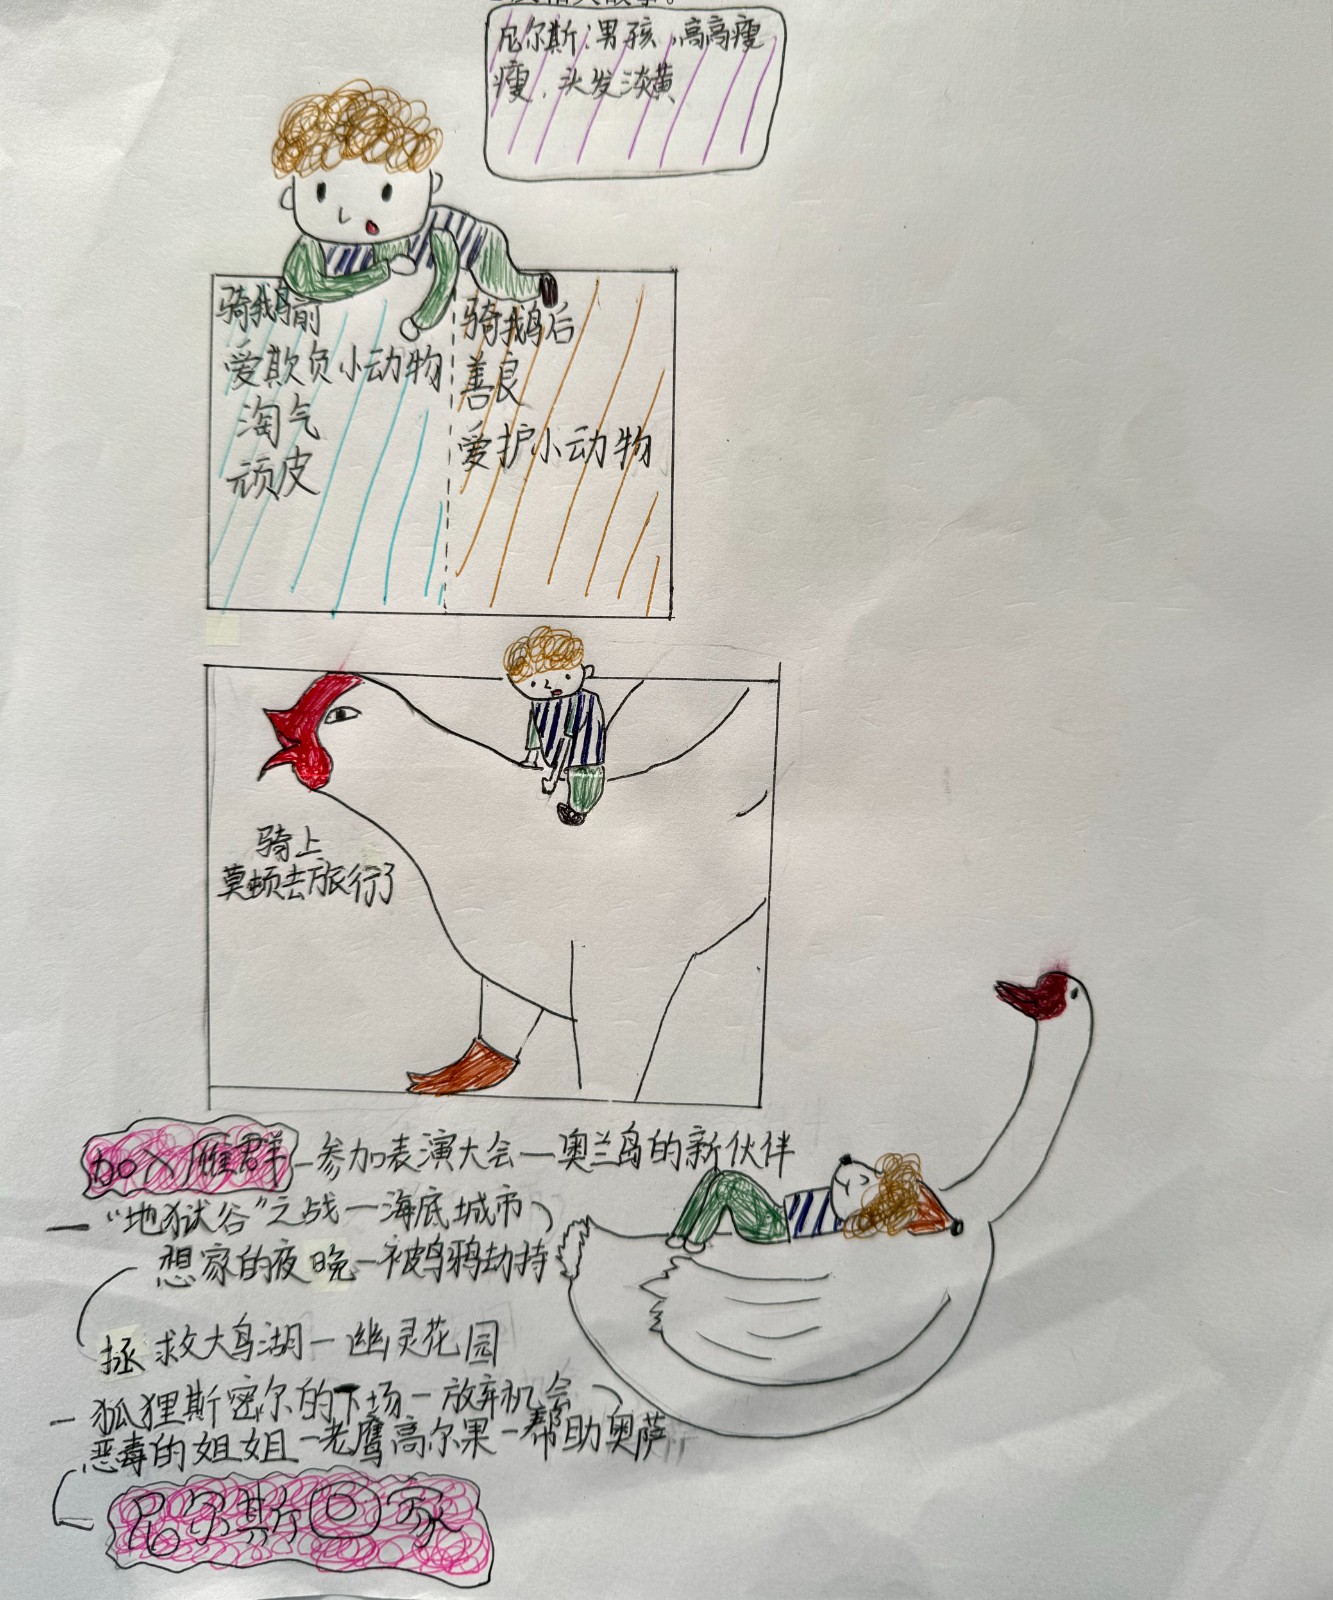 尼尔斯：男孩，高高瘦
瘦，头发淡黄
骑鹅前
爱欺负小动物
淘气
顽皮
骑鹅后
善良
爱护小动物
骑上
莫顿去旅行了
加入雁群—参加表演大会—奥兰岛的新伙伴
—“地狱谷”之战—海底城市
想家的夜晚—被乌鸦劫持
拯救大鸟湖—幽灵花园
—狐狸斯密尔的下场—放弃机会
恶毒的姐姐—老鹰高尔果—帮助奥萨
尼尔斯回家